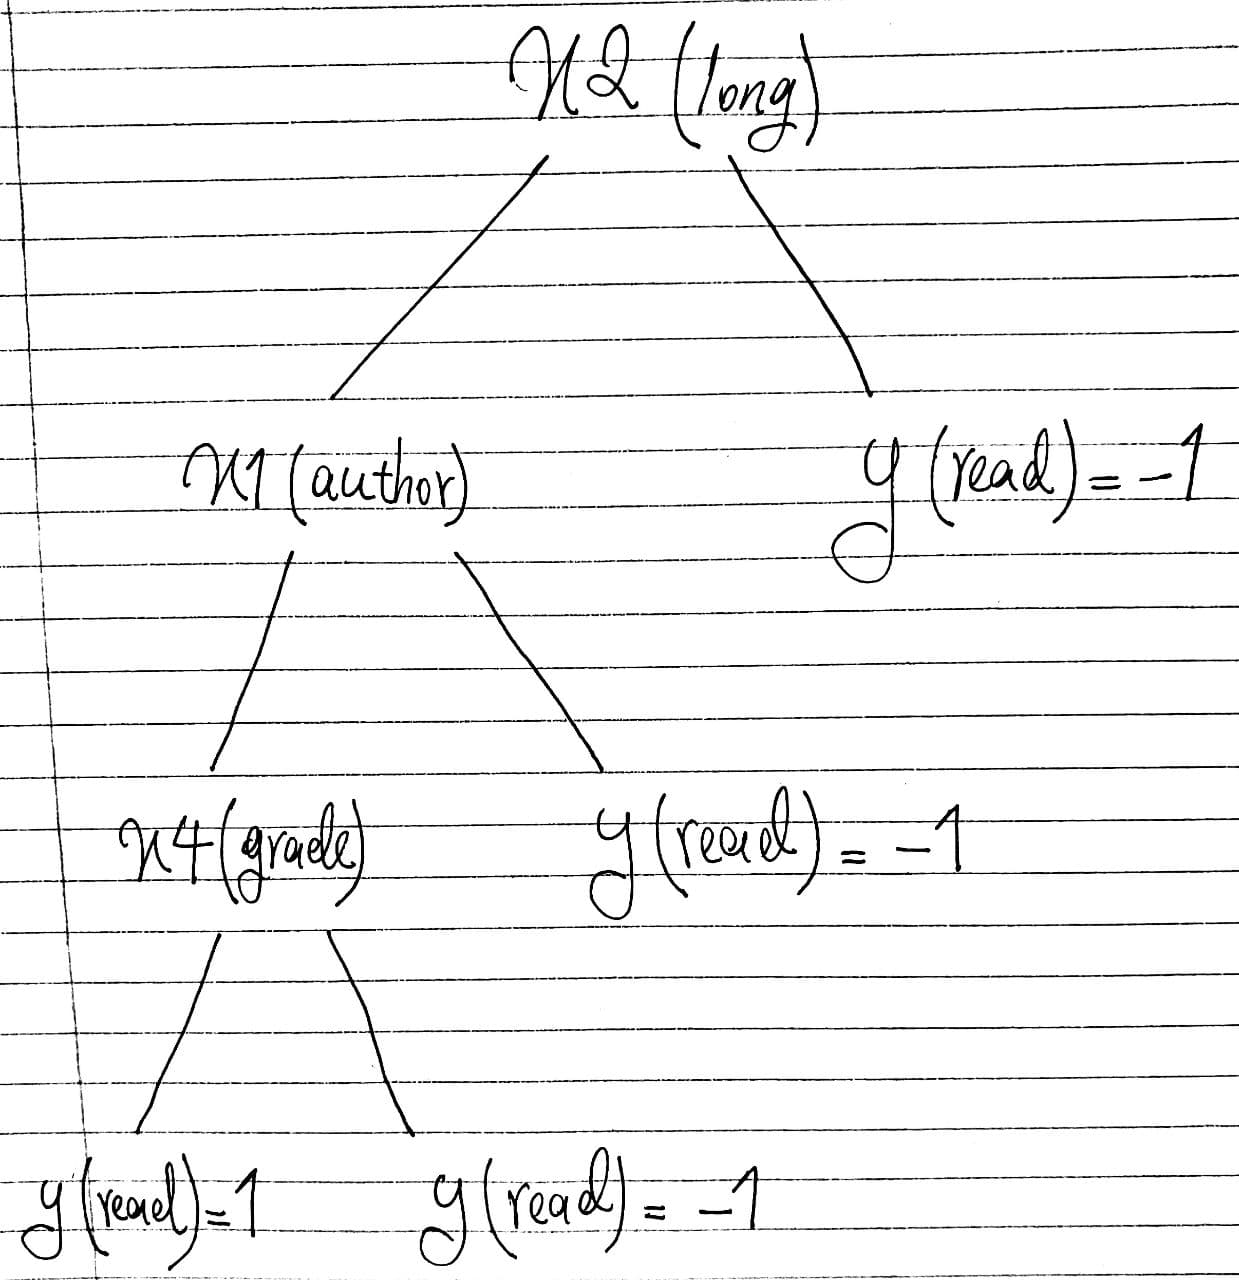 x2 (long)
x1 (author) y (read) = -1
x4 (grade) y (read) = -1
y (read) = 1 y (read) = -1